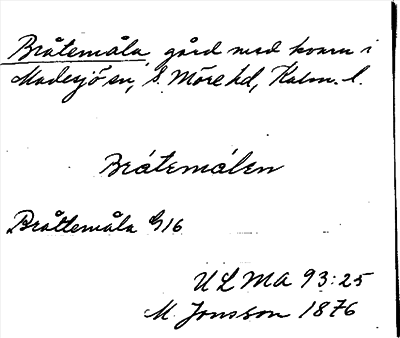 Bråtemåla gård med kvarn i
Madesjö sn, S. Möre hd, Kalm. l.
Brátemålen
Bråttemåla G16
ULMA 93:25
M. Jonsson 1876